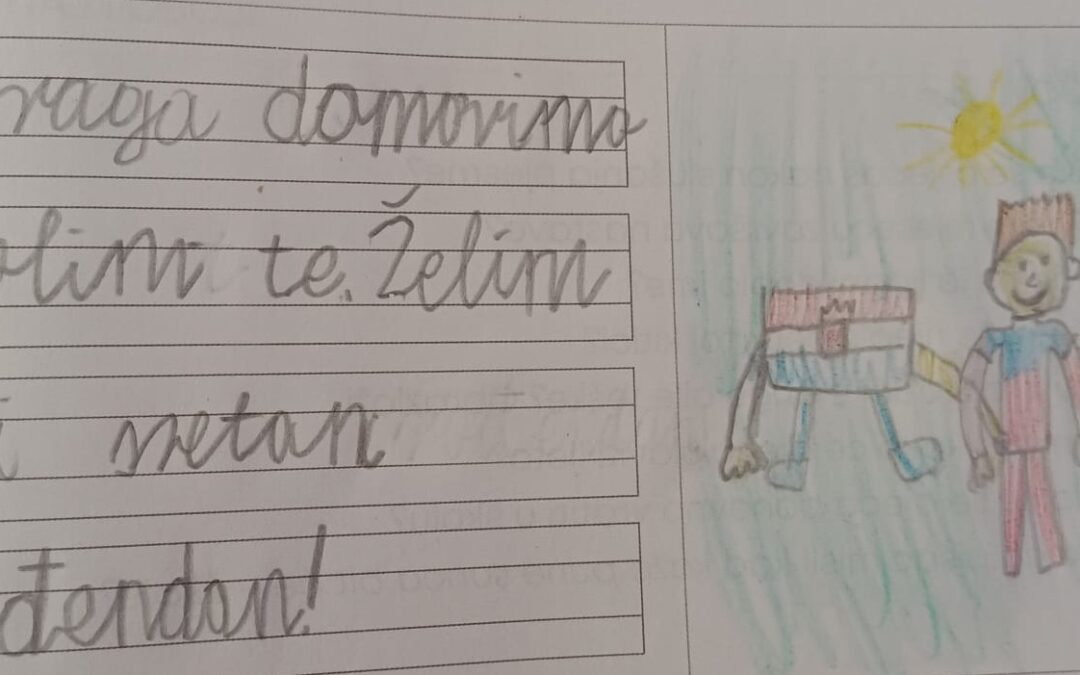 raga domovino
olim te. Želim
i sretan
đendan!